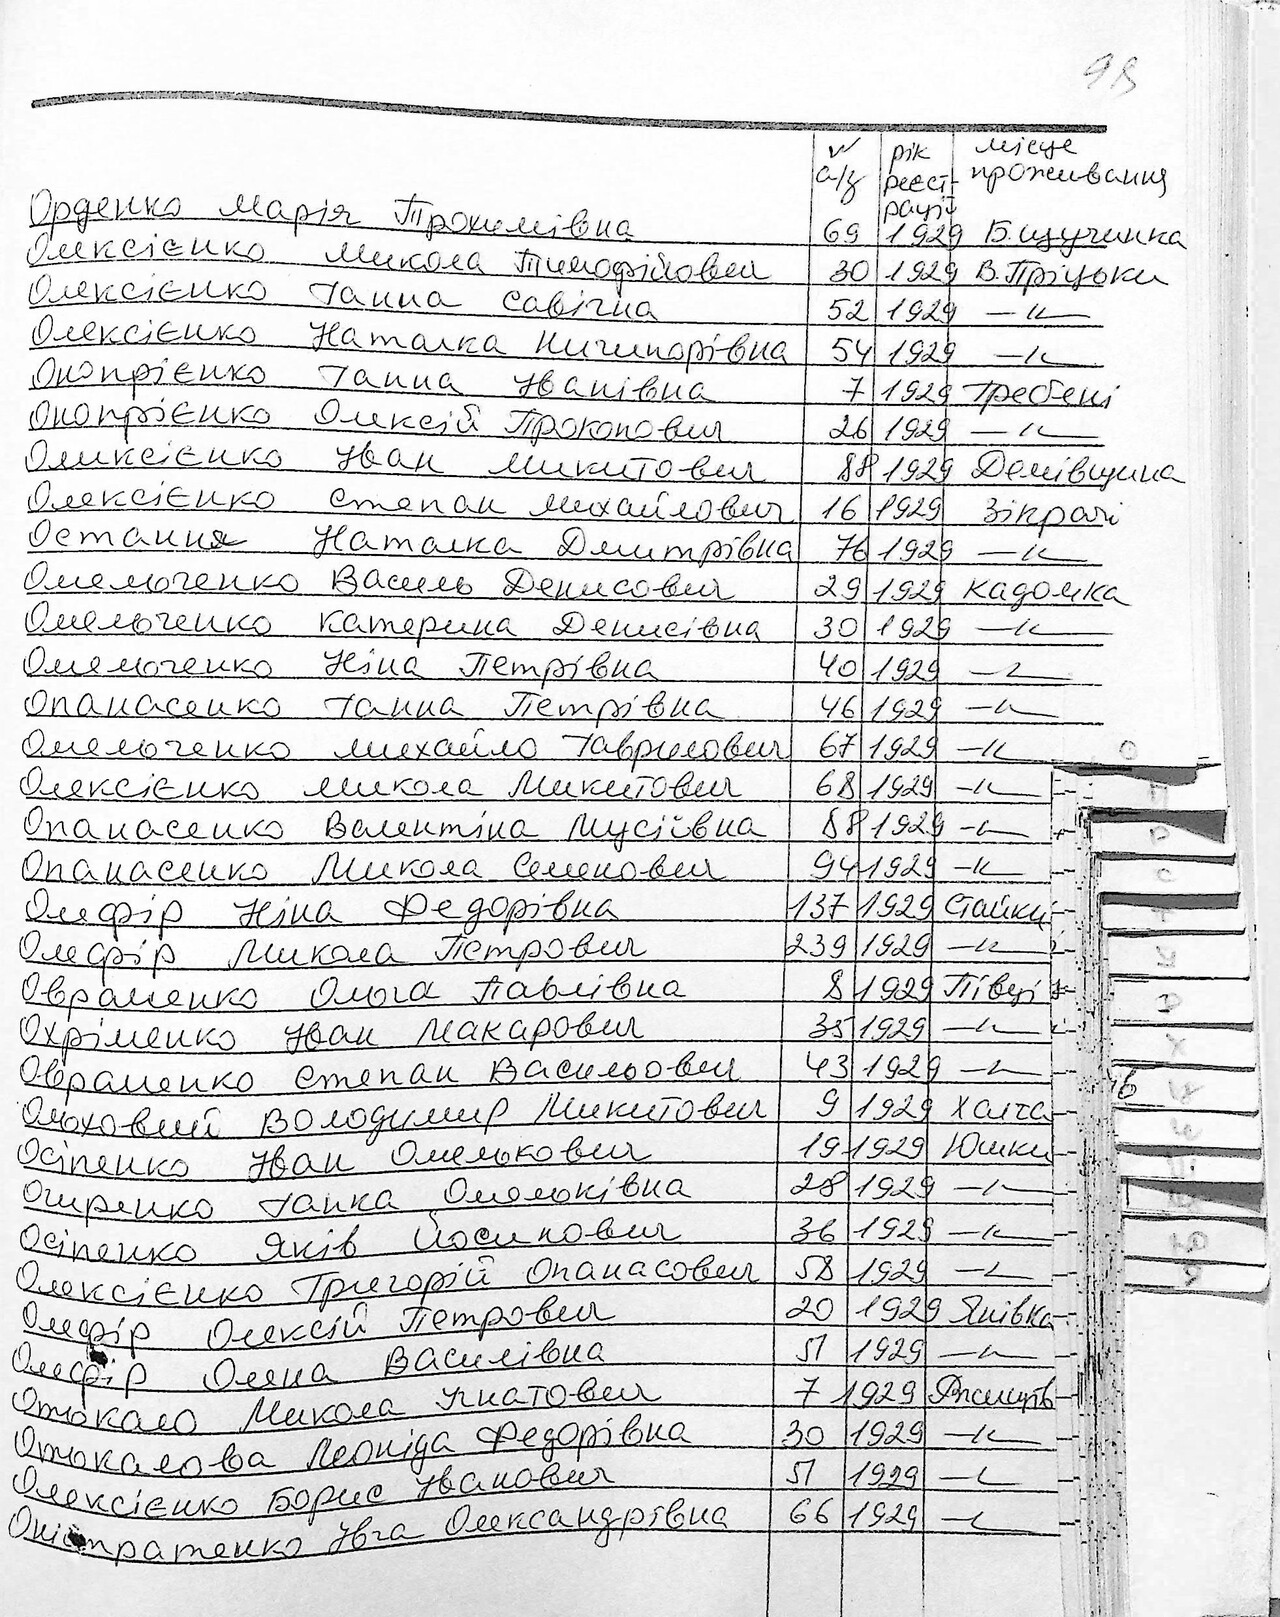 98
№ а/з рік реєстрації місце проживання
Орденко Марія Трохимівна 69 1929 Б. Щучинка
Олексієнко Микола Тимофійович 30 1929 В. Пріцьки
Олексієнко Ганна Савічна 52 1929 —"—
Олексієнко Наталка Ничипорівна 54 1929 —"—
Онопрієнко Ганна Іванівна 7 1929 Гребені
Онопрієнко Олексій Прокопович 26 1929 —"—
Олексієнко Іван Микитович 88 1929 Демівщина
Олексієнко Степан Михайлович 16 1929 Зікрачі
Остання Наталка Дмитрівна 76 1929 —"—
Омельченко Василь Денисович 29 1929 Кадомка
Омельченко Катерина Денисівна 30 1929 —"—
Омельченко Ніна Петрівна 40 1929 —"—
Опанасенко Ганна Петрівна 46 1929 —"—
Омельченко Михайло Гаврилович 67 1929 —"—
Олексієнко Микола Микитович 68 1929 —"—
Опанасенко Валентіна Мусіївна 88 1929 —"—
Опанасенко Микола Семенович 94 1929 —"—
Олефір Ніна Федорівна 137 1929 Стайки
Олефір Микола Петрович 239 1929 —"—
Овраменко Ольга Павлівна 8 1929 Півці
Охріменко Іван Макарович 35 1929 —"—
Овраменко Степан Васильович 43 1929 —"—
Ольховий Володимир Микитович 9 1929 Халча
Осіпенко Іван Омелькович 19 1929 Юшки
Ганка Омельківна 28 1929 —"—
Осіпенко Яків Йосипович 36 1929 —"—
Олексієнко Григорій Опанасович 58 1929 —"—
Олефір Олексій Петрович 20 1929 Янівка
Олефір Олена Василівна 51 1929 —"—
Отокало Микола Гнатович 7 1929 Ржищів
Отокалова Леоніда Федорівна 30 1929 —"—
Олексієнко Борис Іванович 51 1929 —"—
Івга Олександрівна 66 1929 —"—